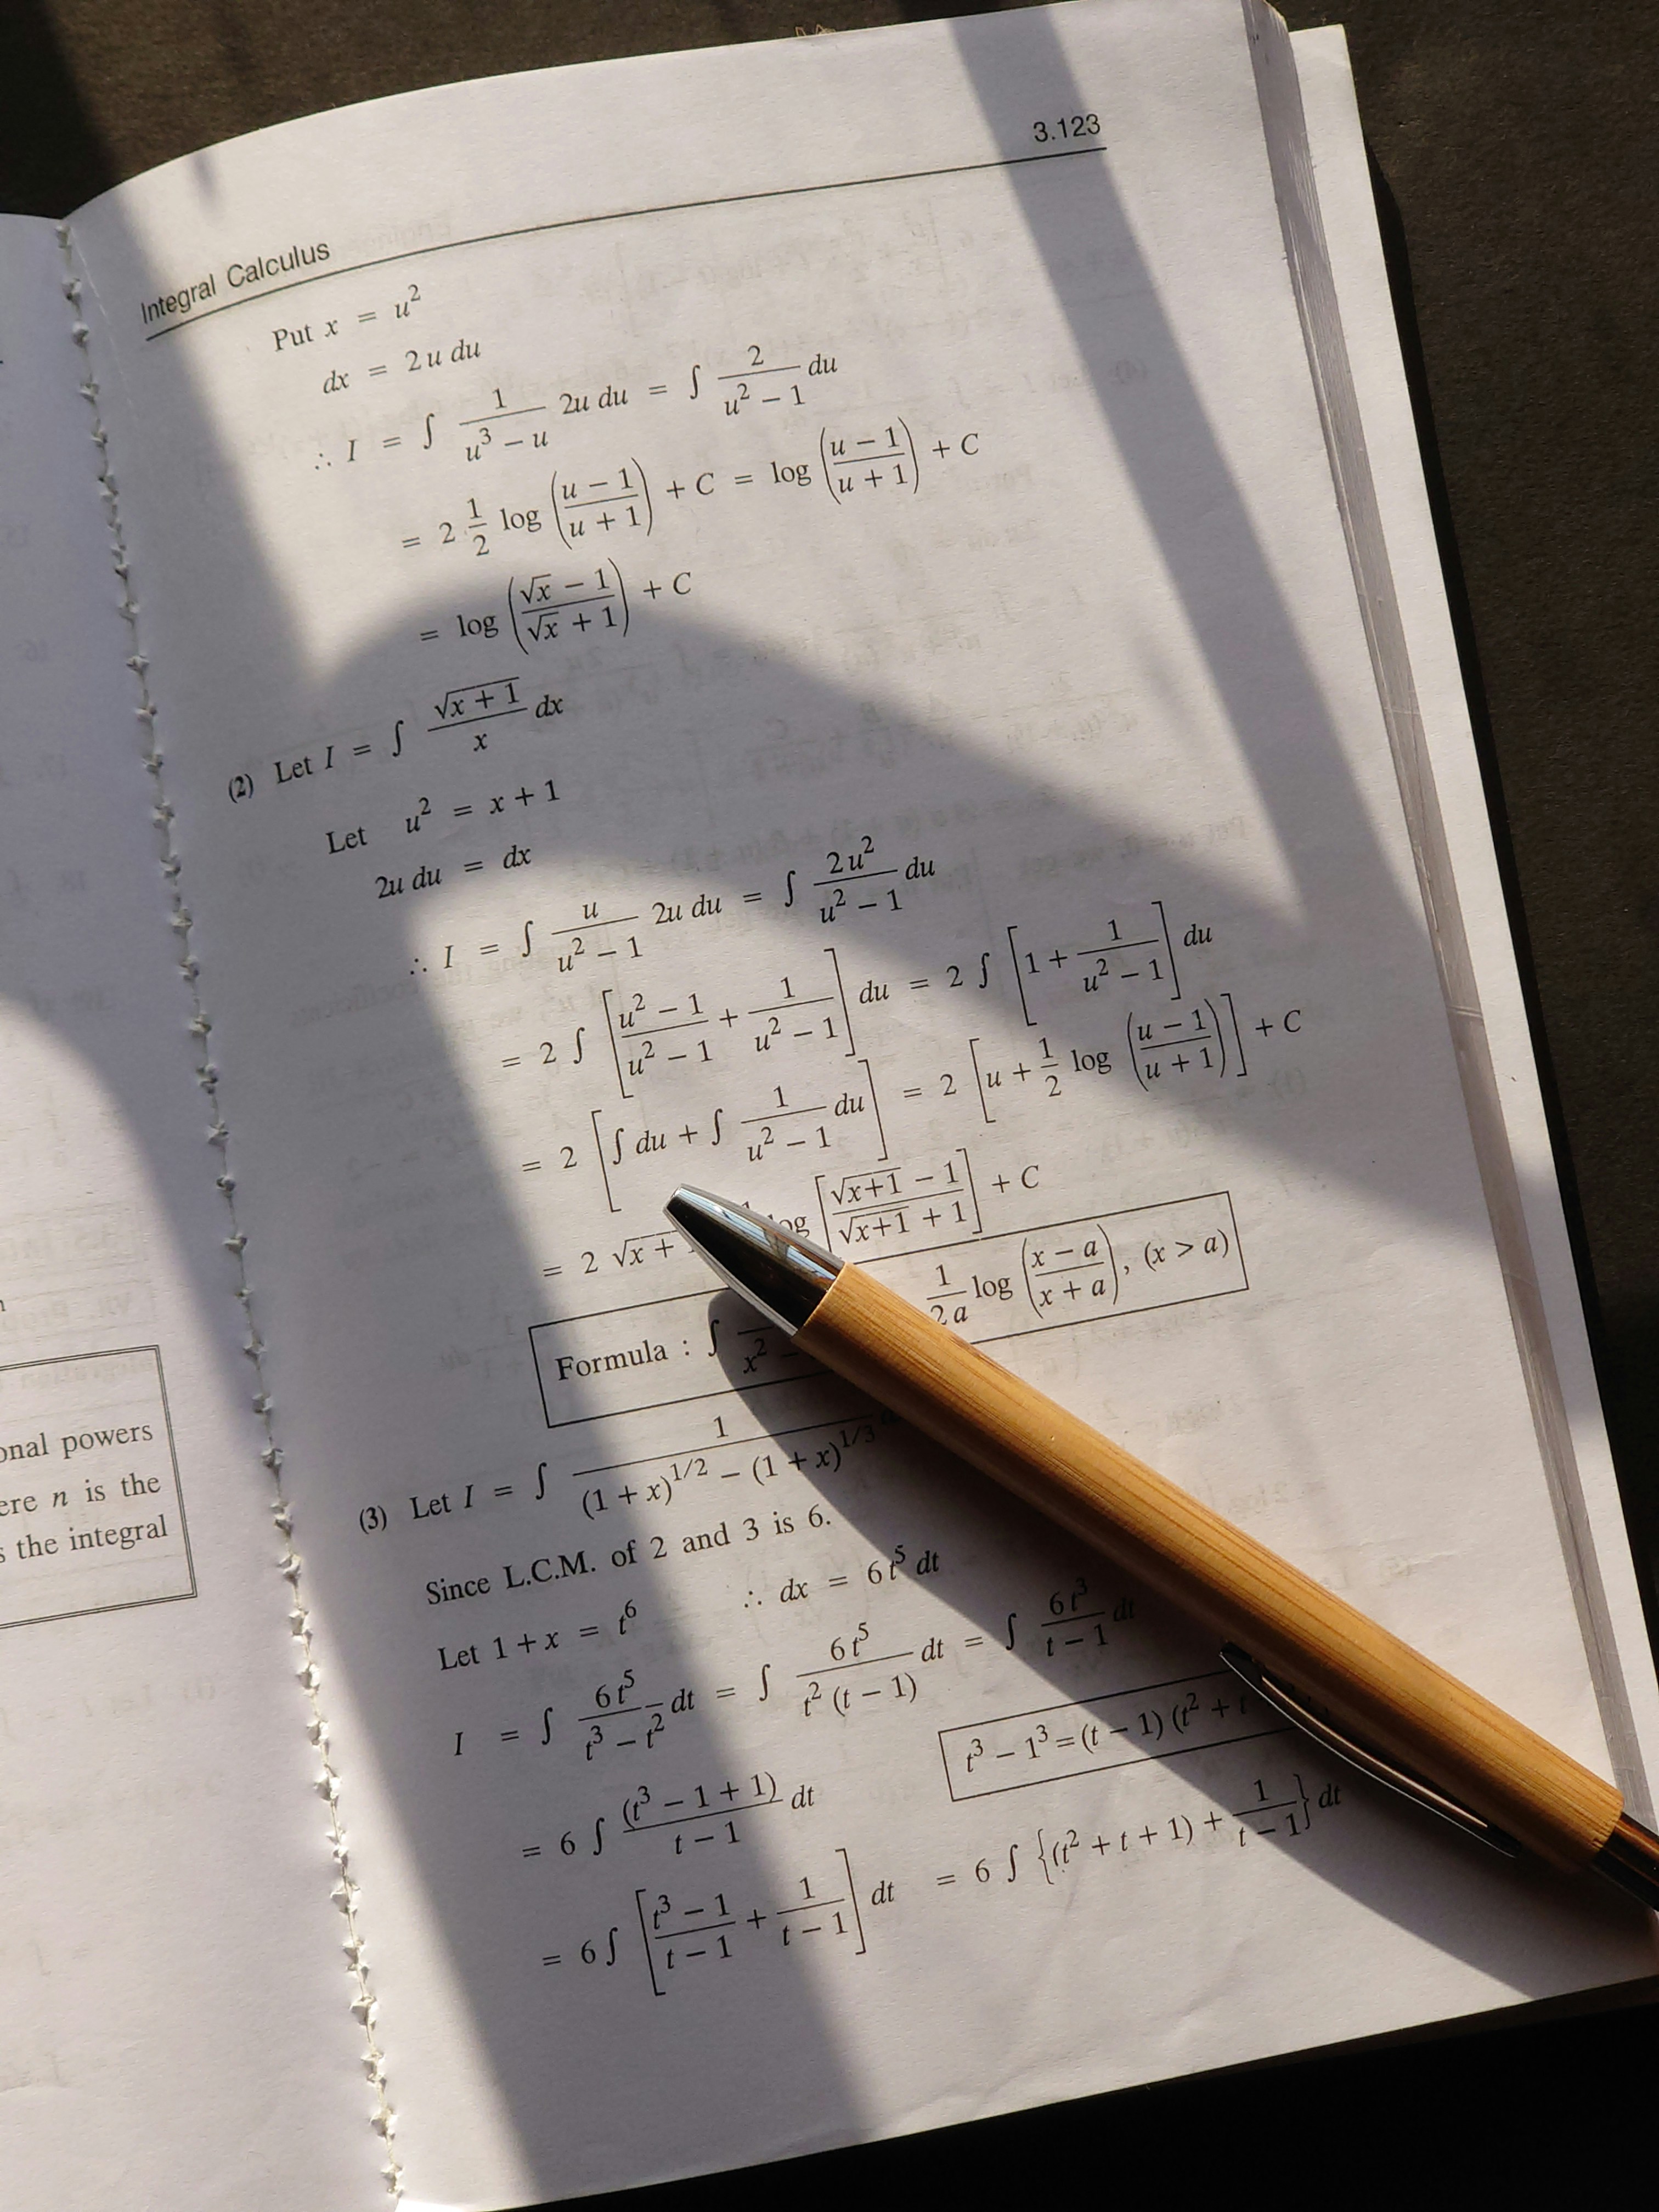 3.123
Integral Calculus
Put x = u²
dx = 2u du
∴ I = ∫ 1/(u³ − u) 2u du = ∫ 2/(u² − 1) du
= 2 1/2 log ((u − 1)/(u + 1)) + C = log ((u − 1)/(u + 1)) + C
= log ((√x − 1)/(√x + 1)) + C
(2) Let I = ∫ √(x + 1)/x dx
Let u² = x + 1
2u du = dx
∴ I = ∫ u/(u² − 1) 2u du = ∫ 2u²/(u² − 1) du
= 2 ∫ [(u² − 1)/(u² − 1) + 1/(u² − 1)] du = 2 ∫ [1 + 1/(u² − 1)] du
= 2 [∫ du + ∫ 1/(u² − 1) du] = 2 [u + 1/2 log ((u − 1)/(u + 1))] + C
= 2 √x + [(√(x+1) − 1)/(√(x+1) + 1)] + C
Formula : ∫ x² 1/(2a) log ((x − a)/(x + a)), (x > a)
(3) Let I = ∫ 1/((1 + x)^(1/2) − (1 + x)^(1/3))
Since L.C.M. of 2 and 3 is 6.
Let 1 + x = t⁶ ∴ dx = 6t⁵ dt
I = ∫ 6t⁵/(t³ − t²) dt = ∫ 6t⁵/(t² (t − 1)) dt = ∫ 6t³/(t − 1) dt
t³ − 1³ = (t − 1) (t² + t
= 6 ∫ (t³ − 1 + 1)/(t − 1) dt
= 6 ∫ [(t³ − 1)/(t − 1) + 1/(t − 1)] dt = 6 ∫ {(t² + t + 1) + 1/(t − 1)} dt
powers
n is the
the integral